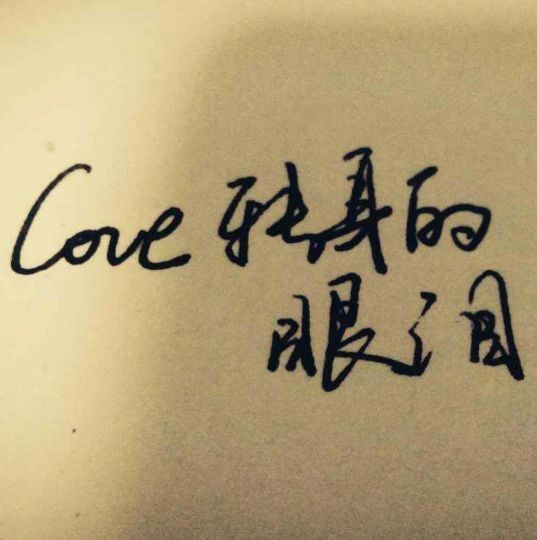 Love 转身的
眼泪